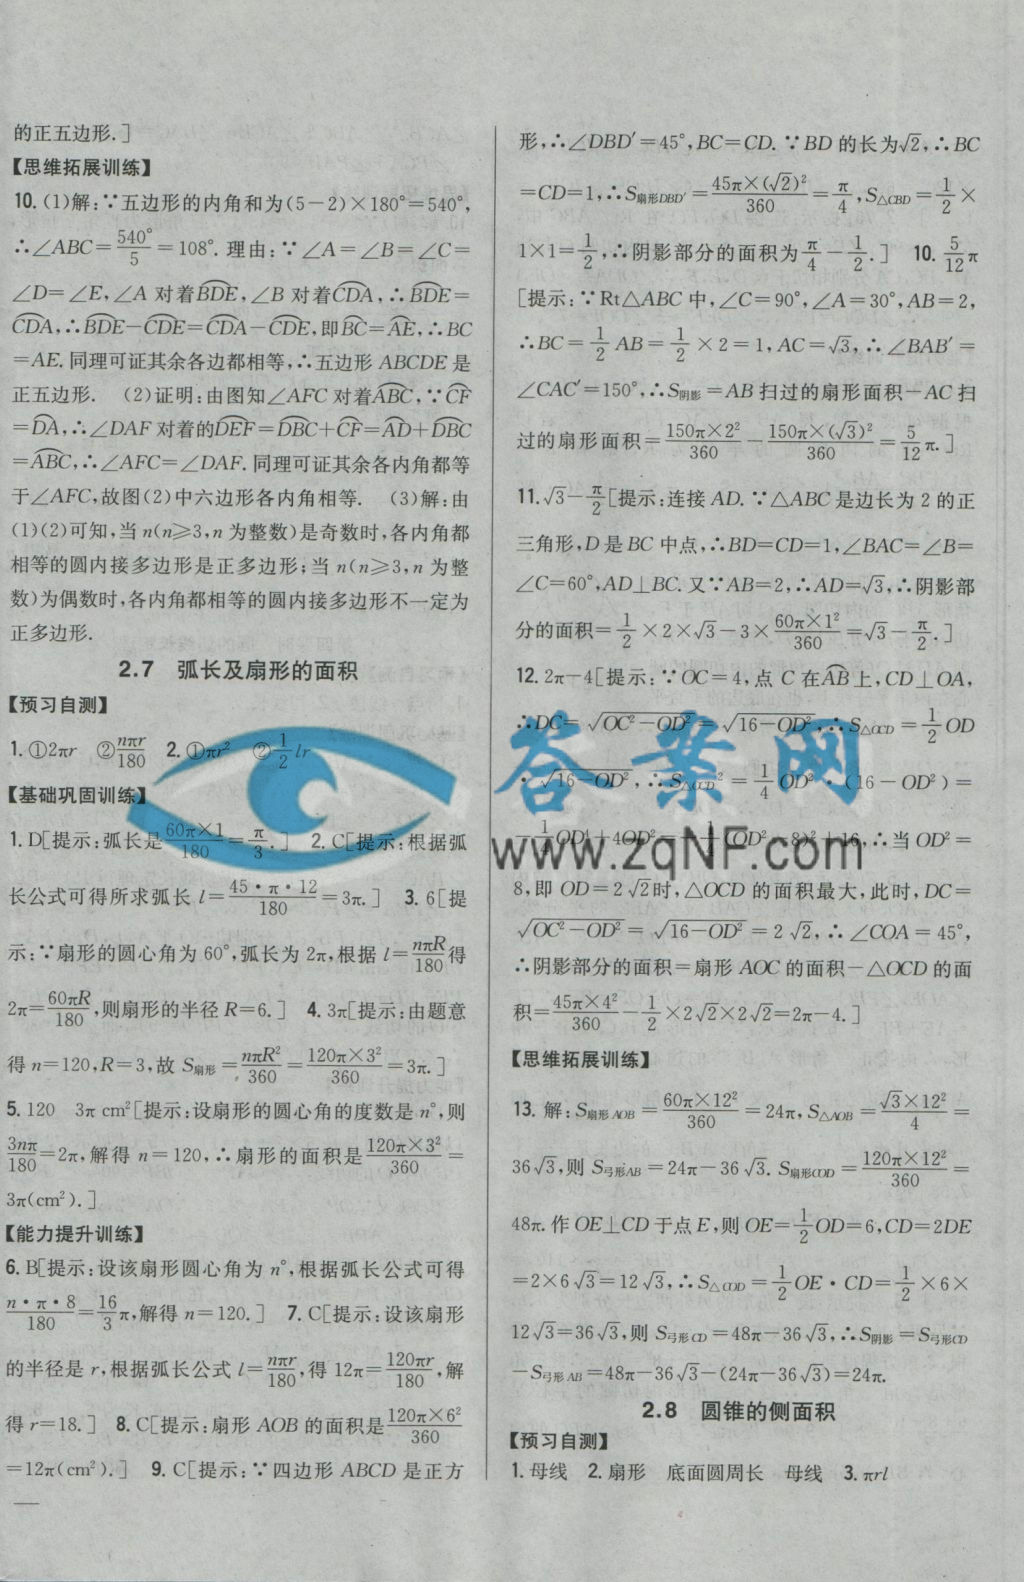 的正五边形.]
【思维拓展训练】
10. (1)解:∵五边形的内角和为(5-2)×180°=540°,
∴∠ABC=540°/5=108°. 理由:∵∠A=∠B=∠C=
∠D=∠E,∠A 对着BDE,∠B 对着CDA,∴BDE=
CDA,∴BDE-CDE=CDA-CDE,即BC=AE,∴BC
=AE. 同理可证其余各边都相等,∴五边形 ABCDE 是
正五边形. (2)证明:由图知∠AFC 对着ABC,∵CF
=DA,∴∠DAF 对着的DEF=DBC+CF=AD+DBC
=ABC,∴∠AFC=∠DAF. 同理可证其余各内角都等
于∠AFC,故图(2)中六边形各内角相等. (3)解:由
(1)(2)可知,当 n(n⩾3,n 为整数)是奇数时,各内角都
相等的圆内接多边形是正多边形;当 n(n⩾3,n 为整
数)为偶数时,各内角都相等的圆内接多边形不一定为
正多边形.
2.7 弧长及扇形的面积
【预习自测】
1. ①2πr ②nπr/180 2. ①πr² ②1/2 lr
【基础巩固训练】
1. D[提示:弧长是60π×1/180=π/3.] 2. C[提示:根据弧
长公式可得所求弧长 l=45·π·12/180=3π.] 3. 6[提
示:∵扇形的圆心角为 60°,弧长为 2π,根据 l=nπR/180得
2π=60πR/180,则扇形的半径 R=6.] 4. 3π[提示:由题意
得 n=120,R=3,故 S扇形=nπR²/360=120π×3²/360=3π.]
5. 120 3π cm²[提示:设扇形的圆心角的度数是 n°,则
3nπ/180=2π,解得 n=120,∴扇形的面积是120π×3²/360=
3π(cm²).]
【能力提升训练】
6. B[提示:设该扇形圆心角为 n°,根据弧长公式可得
n·π·8/180=16/3π,解得 n=120.] 7. C[提示:设该扇形
的半径是 r,根据弧长公式 l=nπr/180,得 12π=120πr/180,解
得 r=18.] 8. C[提示:扇形 AOB 的面积是120π×6²/360
=12π(cm²).] 9. C[提示:∵四边形 ABCD 是正方
形,∴∠DBD′=45°,BC=CD. ∵BD 的长为√2,∴BC
=CD=1,∴S扇形DBD′=45π×(√2)²/360=π/4,S△CBD=1/2×
1×1=1/2,∴阴影部分的面积为π/4-1/2.] 10. 5/12π
[提示:∵Rt△ABC 中,∠C=90°,∠A=30°,AB=2,
∴BC=1/2 AB=1/2×2=1,AC=√3,∴∠BAB′=
∠CAC′=150°,∴S阴影=AB 扫过的扇形面积-AC 扫
过的扇形面积=150π×2²/360-150π×(√3)²/360=5/12π.]
11. √3-π/2[提示:连接 AD. ∵△ABC 是边长为 2 的正
三角形,D 是 BC 中点,∴BD=CD=1,∠BAC=∠B=
∠C=60°,AD⊥BC. 又∵AB=2,∴AD=√3,∴阴影部
分的面积=1/2×2×√3-3×60π×1²/360=√3-π/2.]
12. 2π-4[提示:∵OC=4,点 C 在AB上,CD⊥OA,
∴DC=√OC²-OD²=√16-OD²,∴S△OCD=1/2 OD
·√16-OD²,∴S△OCD²=1/4 OD²·(16-OD²)=
-1/4 OD⁴+4OD²=-1/4(OD²-8)²+16,∴当 OD²=
8,即 OD=2√2时,△OCD 的面积最大,此时,DC=
√OC²-OD²=√16-OD²=2√2,∴∠COA=45°,
∴阴影部分的面积=扇形 AOC 的面积-△OCD 的面
积=45π×4²/360-1/2×2√2×2√2=2π-4.]
【思维拓展训练】
13. 解:S扇形AOB=60π×12²/360=24π,S△AOB=√3×12²/4=
36√3,则 S弓形AB=24π-36√3. S扇形COD=120π×12²/360=
48π. 作 OE⊥CD 于点 E,则 OE=1/2 OD=6,CD=2DE
=2×6√3=12√3,∴S△COD=1/2 OE·CD=1/2×6×
12√3=36√3,则 S弓形CD=48π-36√3,∴S阴影=S弓形CD
-S弓形AB=48π-36√3-(24π-36√3)=24π.
2.8 圆锥的侧面积
【预习自测】
1. 母线 2. 扇形 底面圆周长 母线 3. πrl
答案网
www.zqNF.com